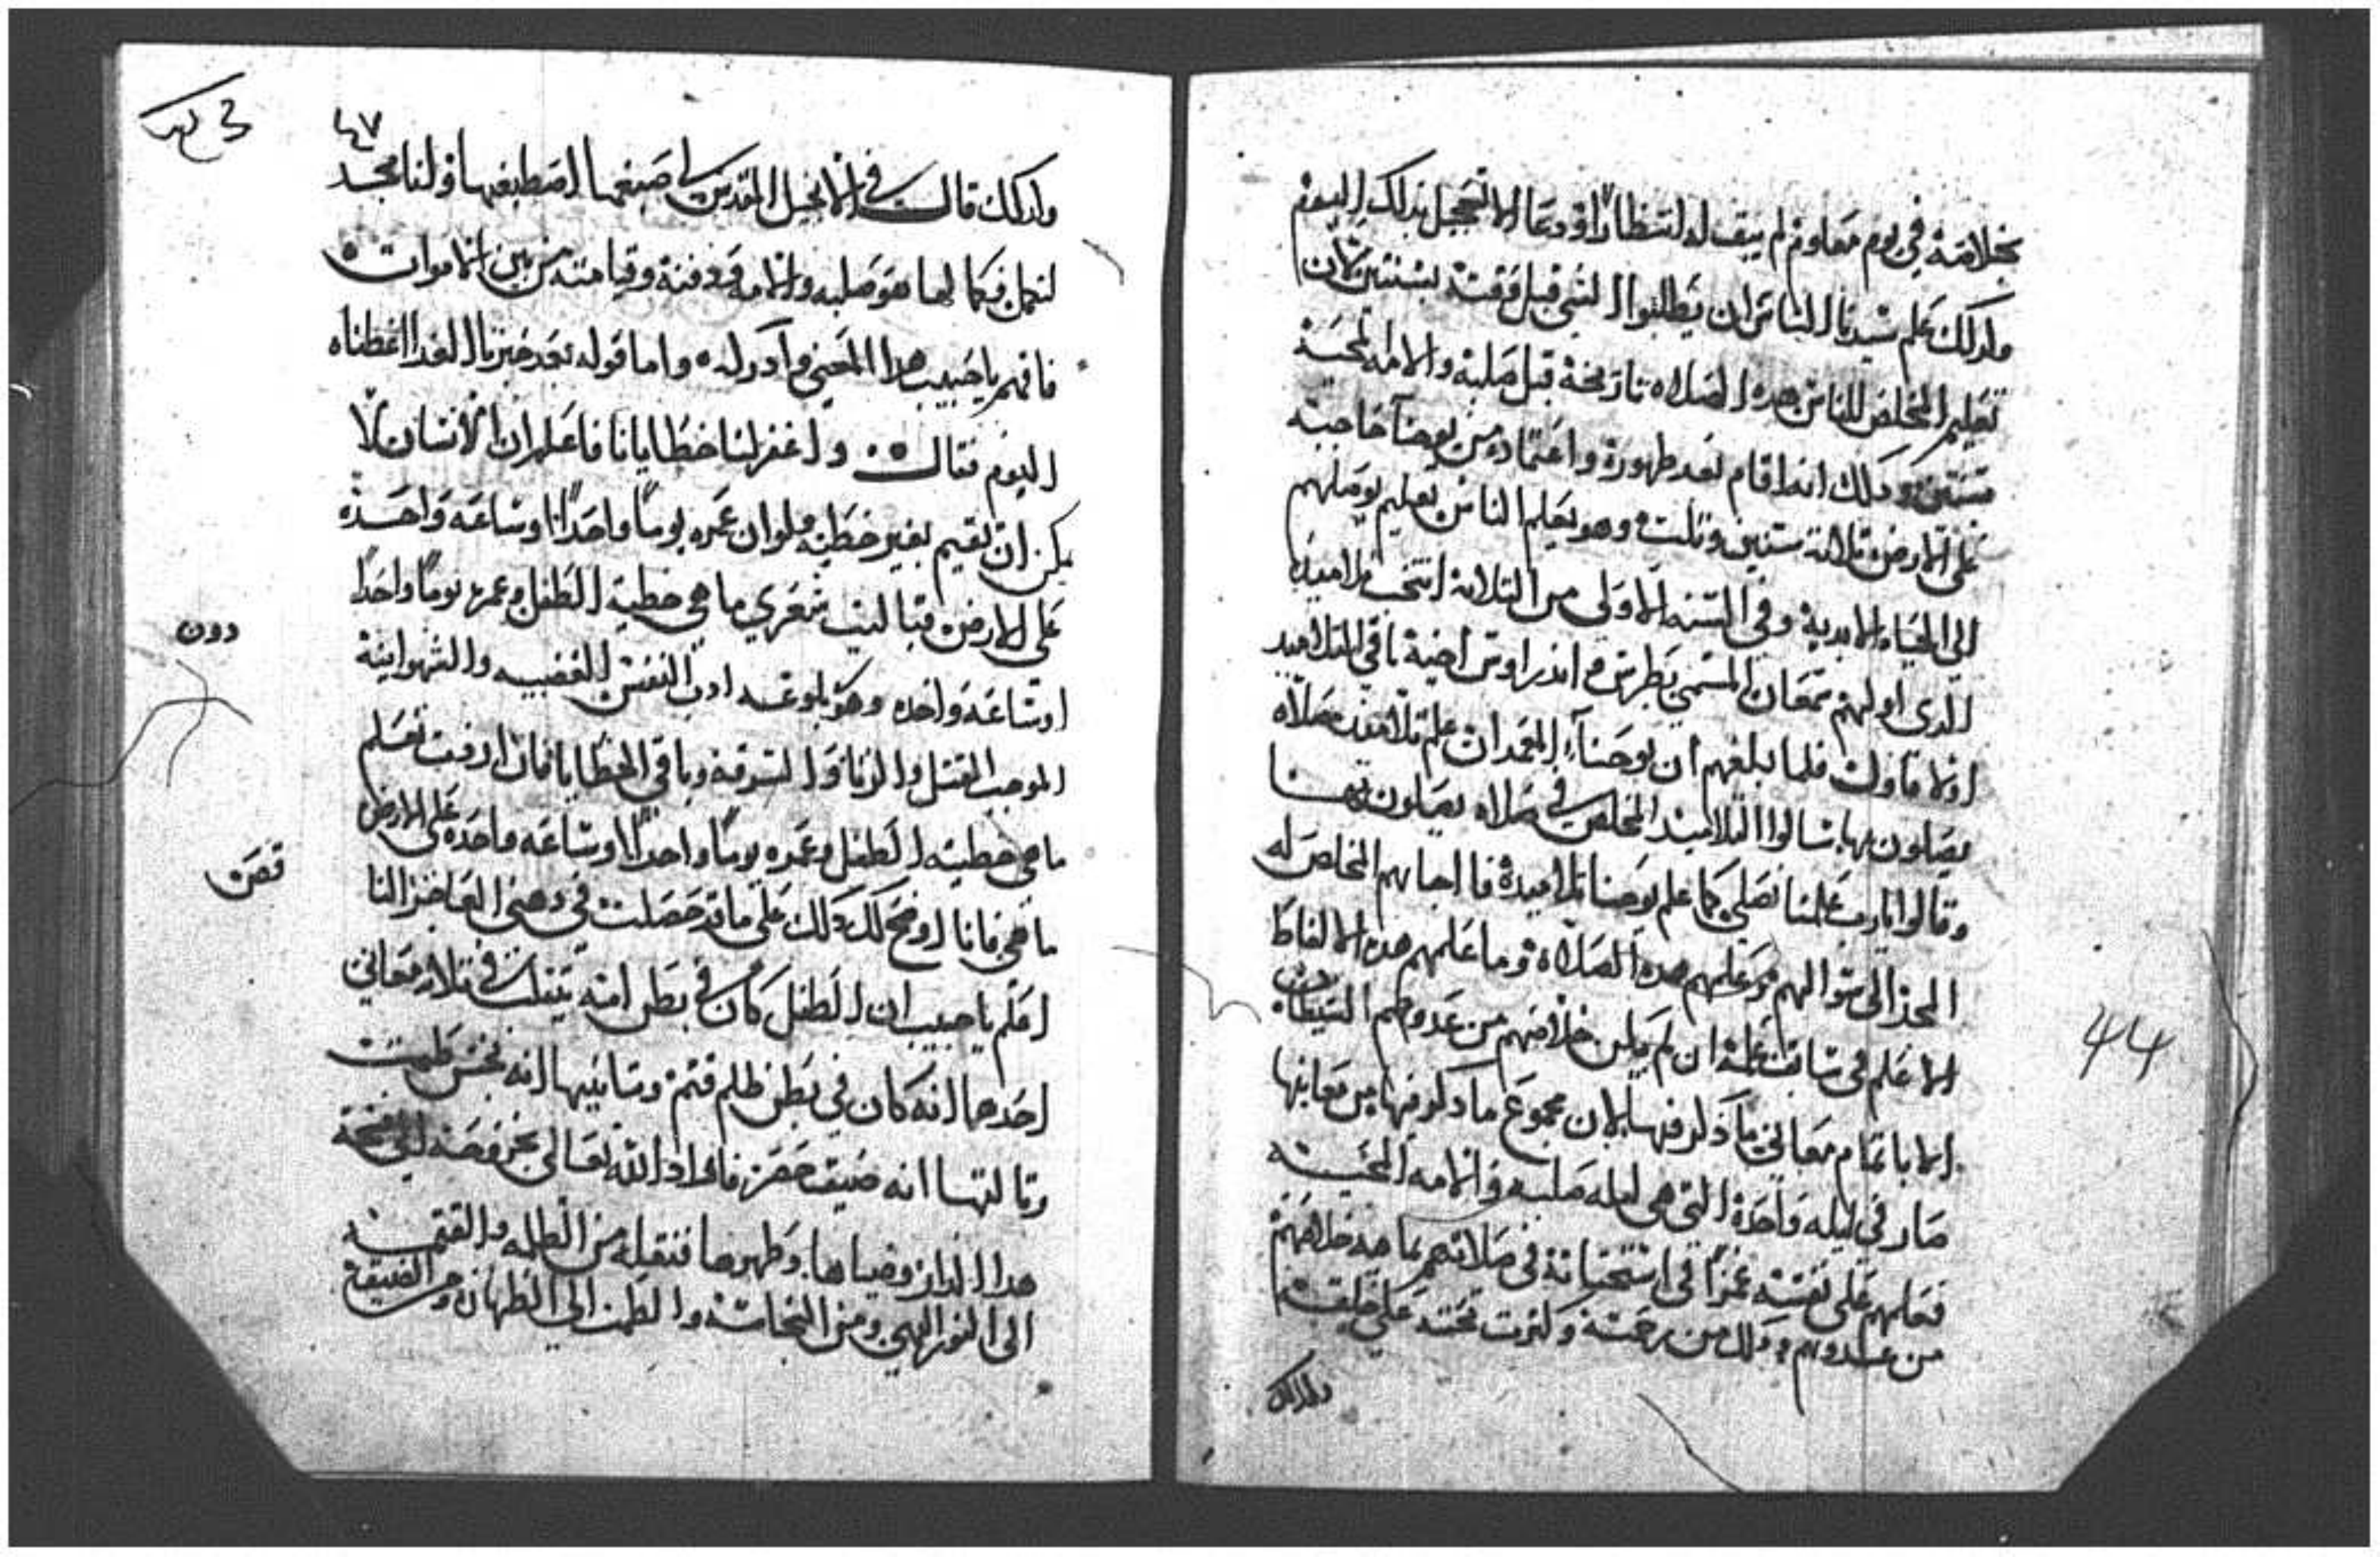 بخلاصة في يوم معلوم لم يبق له انتظارا ودعا الا تعجيل بذلك اليوم
ولدلك علم سيدنا الناس ان يطلبوا الشي قبل وقته بسنتين لان
تعليم المخلص للناس هده الصلاه تاريخة قبل صلبه والامه المحيية
سنتين ودلك انه اقام بعد طهورة واعتماده من يوحنا حاجبه
على الارض تلاتة سنين وتلت وهو يعلم الناس تعليم يوصلهم
الي الحياه الابدية وفي السنه الاولي من التلاتة انتخب تلاميده
الدي اولهم سمعان المسمي بطرس واندراوس اخية باقي التلاميد
اولا فاول فلما بلغهم ان يوحنا المعمدان علم تلاميده صلاه
يصلون بها سالوا التلاميد المخلص في صلاه يصلون بها
وقالوا يارب علمنا نصلي كما علم يوحنا تلاميدة فاجابهم المخلص له
المجد الي سوالهم وعلمهم هده الصلاه وما علمهم هده الالفاظ
الا علم في سابق علمه ان لم يكن خلاصهم من عدوهم الشيطان
الا باتمام معاني ما دكر فيها لان مجموع ما دكر فيها من معانيها
صار في ليله واحدة التي هي ليله صلبه والامه المحييه
فعلمهم على نفسه في صلاتهم بما فيه خلاصهم
من عدوهم ودلك من رحمته وكترت تحننه على خليقته
ولدلك
44
٤٧
ولدلك قال في الانجيل المقدس لي صبغه اصطبغها ولنا مجد
لنكمل فكمالها هو صلبه والامه ودفنة وقيامته من بين الاموات
فافهم يا حبيب هدا المعني وادركه واما قوله بعد خبزنا الغد اعطناه
اليوم فقال واغفر لنا خطايانا فاعلم ان الانسان لا
يمكن ان يقيم بغير خطيه ولو ان عمره يوما واحدا وساعه واحده
علي الارض فيا ليت شعري ما هي خطية الطفل وعمره يوما واحدا
اوساعه واحده وهو النفس الغضبيه والشهوانية
الموجب القتل والزنا والسرقه وباقي الخطايا فان اردت تعلم
ما هي خطيته الطفل وعمره يوما واحدا اوساعه واحده علي الارض
ما هي فانا اوضح لك دلك علي ما قد حصلت في دهني العاجز النا
اعلم يا حبيب ان الطفل كان في بطن امه يتقلب في تلات معاني
احدها انه كان في بطن ظلم قتم وتانيها انه نجس طمت
وتالتها انه ضيق حصر فاراد الله تعالى يخرجه الي فسحة
هدا الدار وضياها وطهرها فنقله من الظلمه والقتمه
الى النور البهي ومن النجاسه والطمت الي الطهاره ومن الضيق
دون